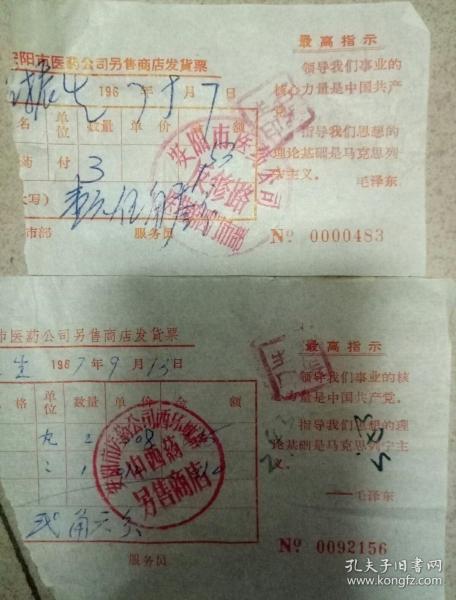 安阳市医药公司另售商店发货票
196 7 年 7 月 7 日
名 单位 数量 单价 金额
药 付 3
写)
市部 服务员
安阳市医药公司
最高指示
领导我们事业的
核心力量是中国共产
党。
指导我们思想的
理论基础是马克思列
宁主义。
毛泽东
№ 0000483
市医药公司另售商店发货票
生 1967年9月13日
格 单位 数量 单价 金额
丸 2 08
弍角六分
服务员
安阳市医药公司西环城路
中西药
另售商店
最高指示
领导我们事业的核
心力量是中国共产党。
指导我们思想的理
论基础是马克思列宁主
义。
——毛泽东
№ 0092156
孔夫子旧书网
www.kongfz.com